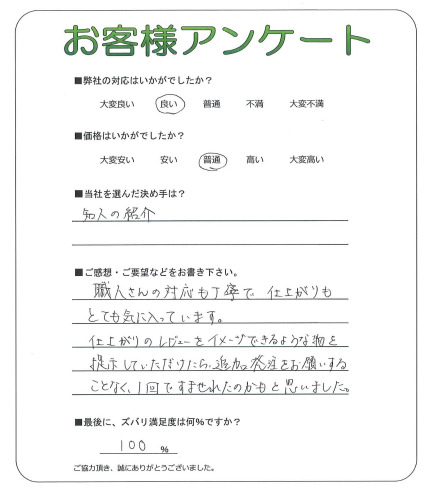 お客様アンケート
■弊社の対応はいかがでしたか？
大変良い 良い 普通 不満 大変不満
■価格はいかがでしたか？
大変安い 安い 普通 高い 大変高い
■当社を選んだ決め手は？
知人の紹介
■ご感想・ご要望などをお書き下さい。
職人さんの対応も丁寧で 仕上がりも
とても気に入っています。
仕上がりのレビューをイメージできるような物を
提示していただけたら、追加発注をお願いする
ことなく、1回ですませれたのかもと思いました。
■最後に、ズバリ満足度は何%ですか？
100 %
ご協力頂き、誠にありがとうございました。